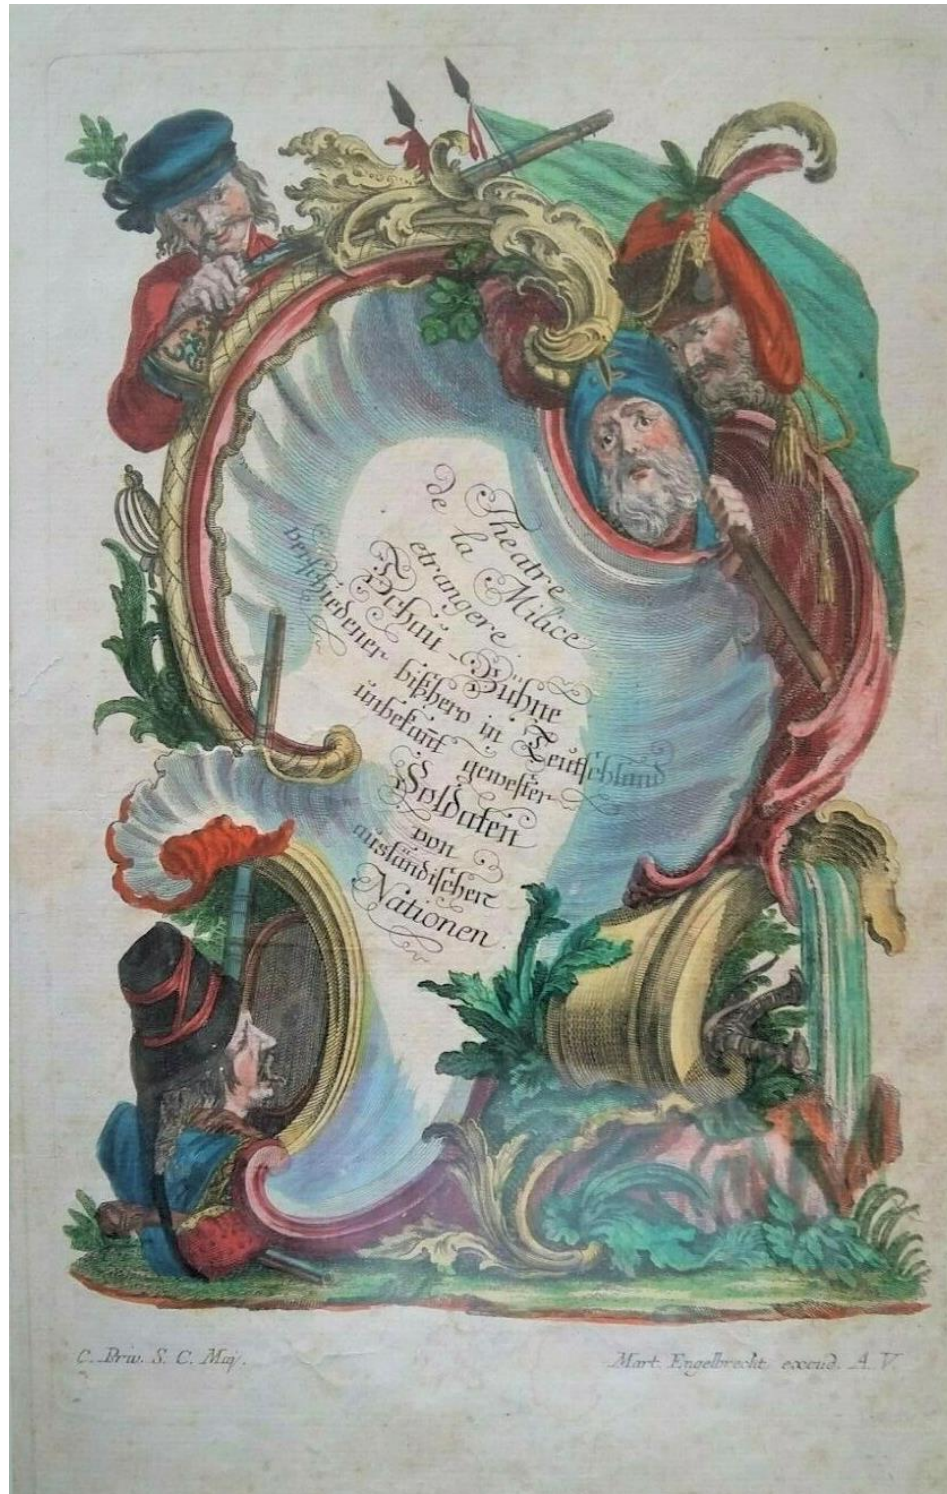 Theatre
de la Milice
etrangere
Schau-Bühne
verschiedener bißhero in Teutschland
unbekant gewester
Soldaten
von
ausländischen
Nationen.
C. Priv. S. C. Maj.
Mart. Engelbrecht excud. A. V.